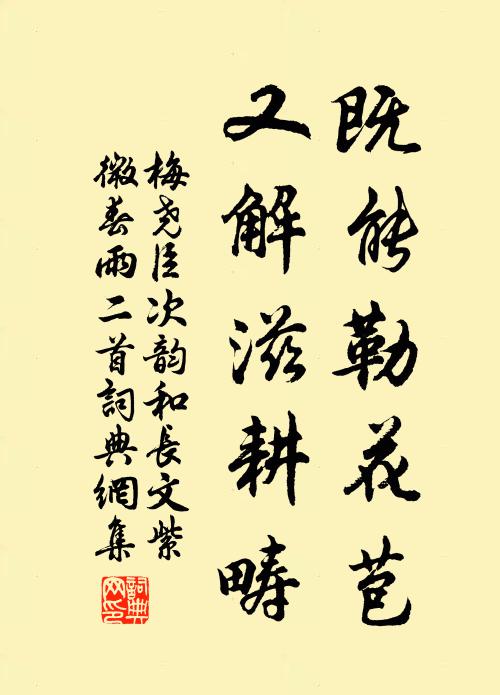 既能勒花苞
又解滋耕畴
梅尧臣次韵和长文紫
微春雨二首詞典網集
詞典網印